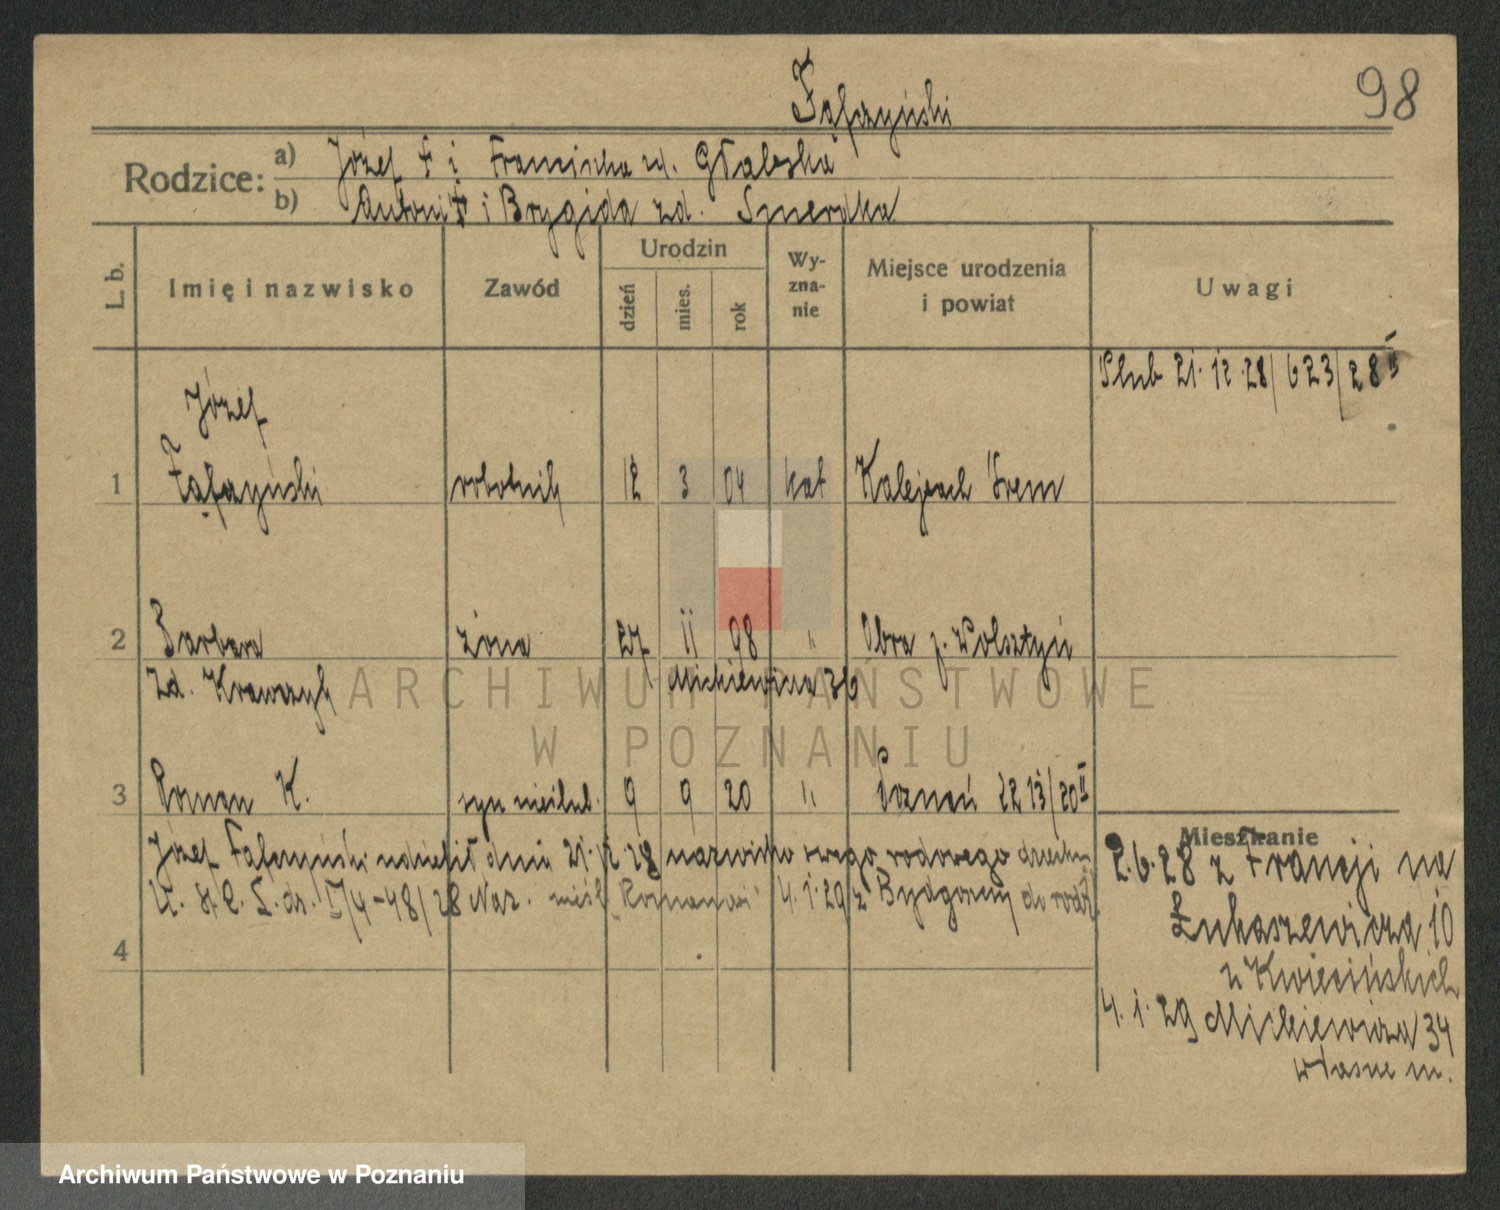 98
Rodzice: a) Józef † i Franciszka zd. Głabska
b) Antoni † i Brygida zd. Smerdka
L. b.
Imię i nazwisko
Zawód
Urodzin
dzień
mies.
rok
Wy-
zna-
nie
Miejsce urodzenia
i powiat
Uwagi
Ślub 21. 12. 28 / 623 / 28
Józef
1 robotnik 12 3 04 kat Kalejach Śrem
2 Barbara żona 27 11 98 " Obra p. Wolsztyn
zd. Krawczyk Mickiewicza 36
3 Roman K. syn nieślub. 9 9 20 " Poznań 2213/20 II
Józef udzielił dnia 21. 12 28 nazwisko swego rodowego dziecku
U. St. C. L. dz. 48/28 Naz. nieśl "Romanowi" 4. 1. 29 z Bydgoszczy do rodz.
4
Mieszkanie
2. 6. 28 z Francji na
Łukaszewicza 10
u Kwiecińskich
4. 1. 29 Mickiewicza 34
własne m.
ARCHIWUM PAŃSTWOWE
W POZNANIU
Archiwum Państwowe w Poznaniu